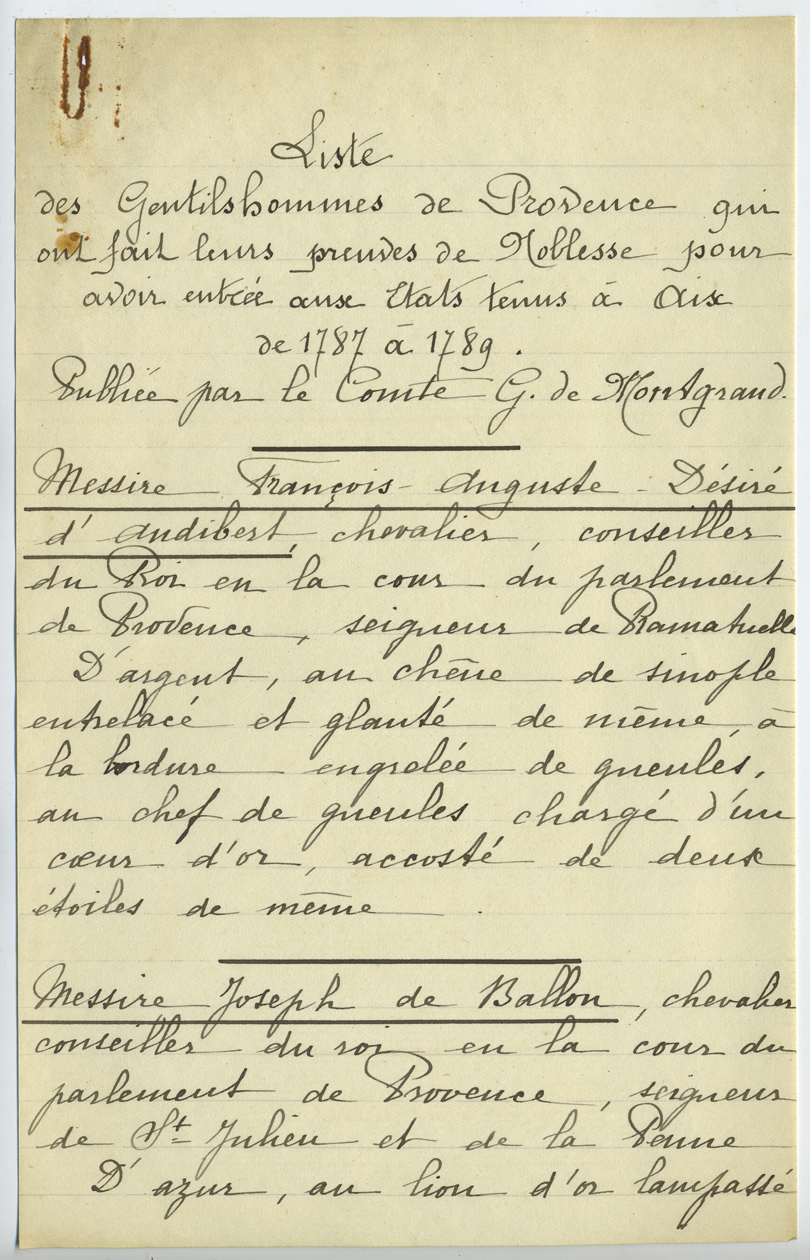 Liste
des Gentilshommes de Provence qui
ont fait leurs preuves de Noblesse pour
avoir entrée aux Etats tenus à Aix
de 1787 à 1789.
Publiée par le Comte G. de Montgrand.
Messire François-Auguste-Désiré
d'Audibert, chevalier, conseiller
du Roi en la cour du parlement
de Provence, seigneur de Ramatuelle
D'argent, au chêne de sinople
entrelacé et glanté de même, à
la bordure engrelée de gueules,
au chef de gueules chargé d'un
cœur d'or, accosté de deux
étoiles de même.
Messire Joseph de Ballon, chevalier
conseiller du roi en la cour du
parlement de Provence, seigneur
de St Julien et de la Penne
D'azur, au lion d'or lampassé